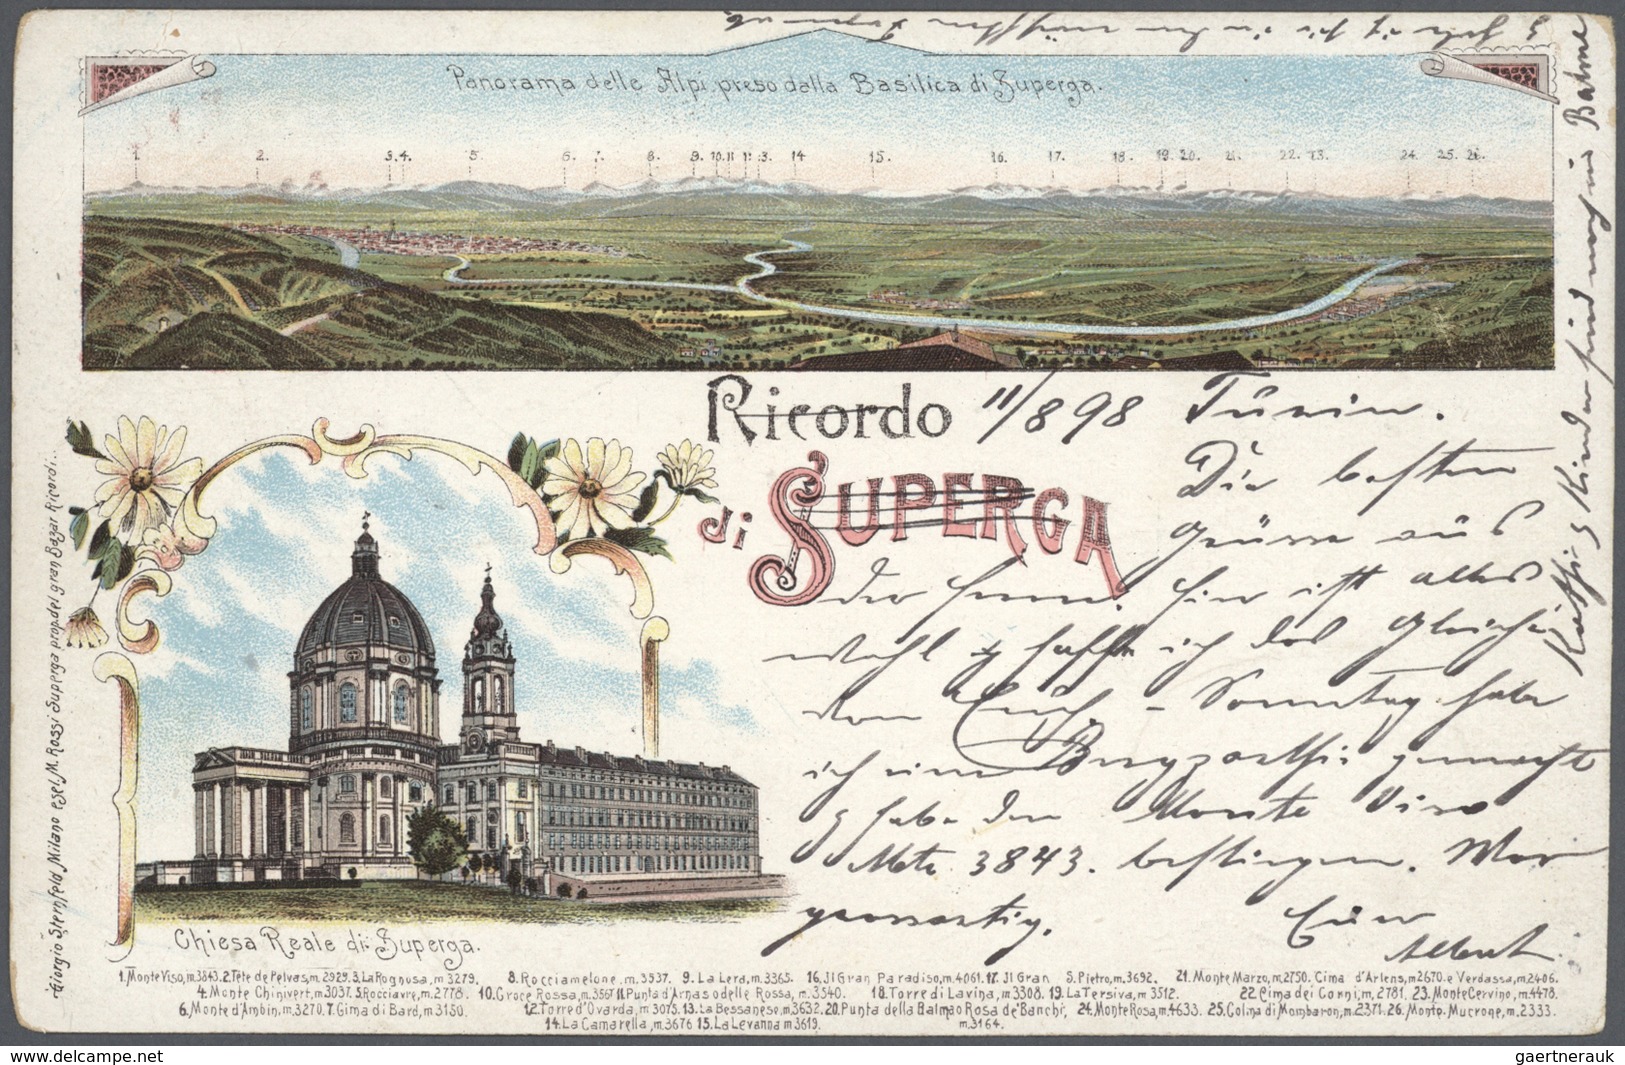 Panorama delle Alpi preso dalla Basilica di Superga.
1. 2. 3. 4. 5. 6. 7. 8. 9. 10. 11 12 13. 14 15. 16. 17. 18. 19. 20. 21. 22. 23. 24. 25. 26.
Ricordo
di SUPERGA
11/8 98 Turin.
Die besten
Grüsse aus
der Ferne. Hier ist alles
wohl & hoffe ich das Gleiche
von Euch. - Sonntag habe
ich eine Bergparthie gemacht
& habe den Monte Viso
Mete 3843. bestiegen. War
grossartig.
Euer
Albert.
Kathi & Kinder sind noch in Balme
Chiesa Reale di Superga.
Giorgio Sternfeld, Milano esel. M. Rossi Superga prop. del gran Bazar Ricordi...
1. Monte Viso, m.3843. 2. Tête de Pelvas, m.2929. 3. La Rognusa, m 3279.
4. Monte Chinivert, m 3037. 5. Rocciavre, m. 2778.
6. Monte d'Ambin, m.3270. 7. Cima di Bard, m 3150.
8. Rocciamelone, m. 3537. 9. La Lera, m.3365.
10. Croce Rossa, m.3567 11. Punta d'Arnas o delle Rossa, m. 3540.
12. Torre d'Ovarda, m 3075. 13. La Bessanese, m,3632.
14. La Camarella, m,3676 15. La Levanna m 3619.
16. Jl Gran Paradiso, m,4061. 17. Jl Gran S. Pietro, m,3692.
18. Torre di Lavina, m,3308. 19. La Tersiva, m 3512.
20. Punta della Balma o Rosa de' Banchi, m.3164.
21. Monte Marzo, m,2750. Cima d'Arlens, m,2670. e Verdassa, m,2406.
22. Cima dei Corni, m, 2781. 23. Monte Cervino, m,4478.
24. Monte Rosa, m.4633. 25. Colma di Mombaron, m,2371. 26. Monte Mucrone, m,2333.
www.delcampe.net
gaertnerauk